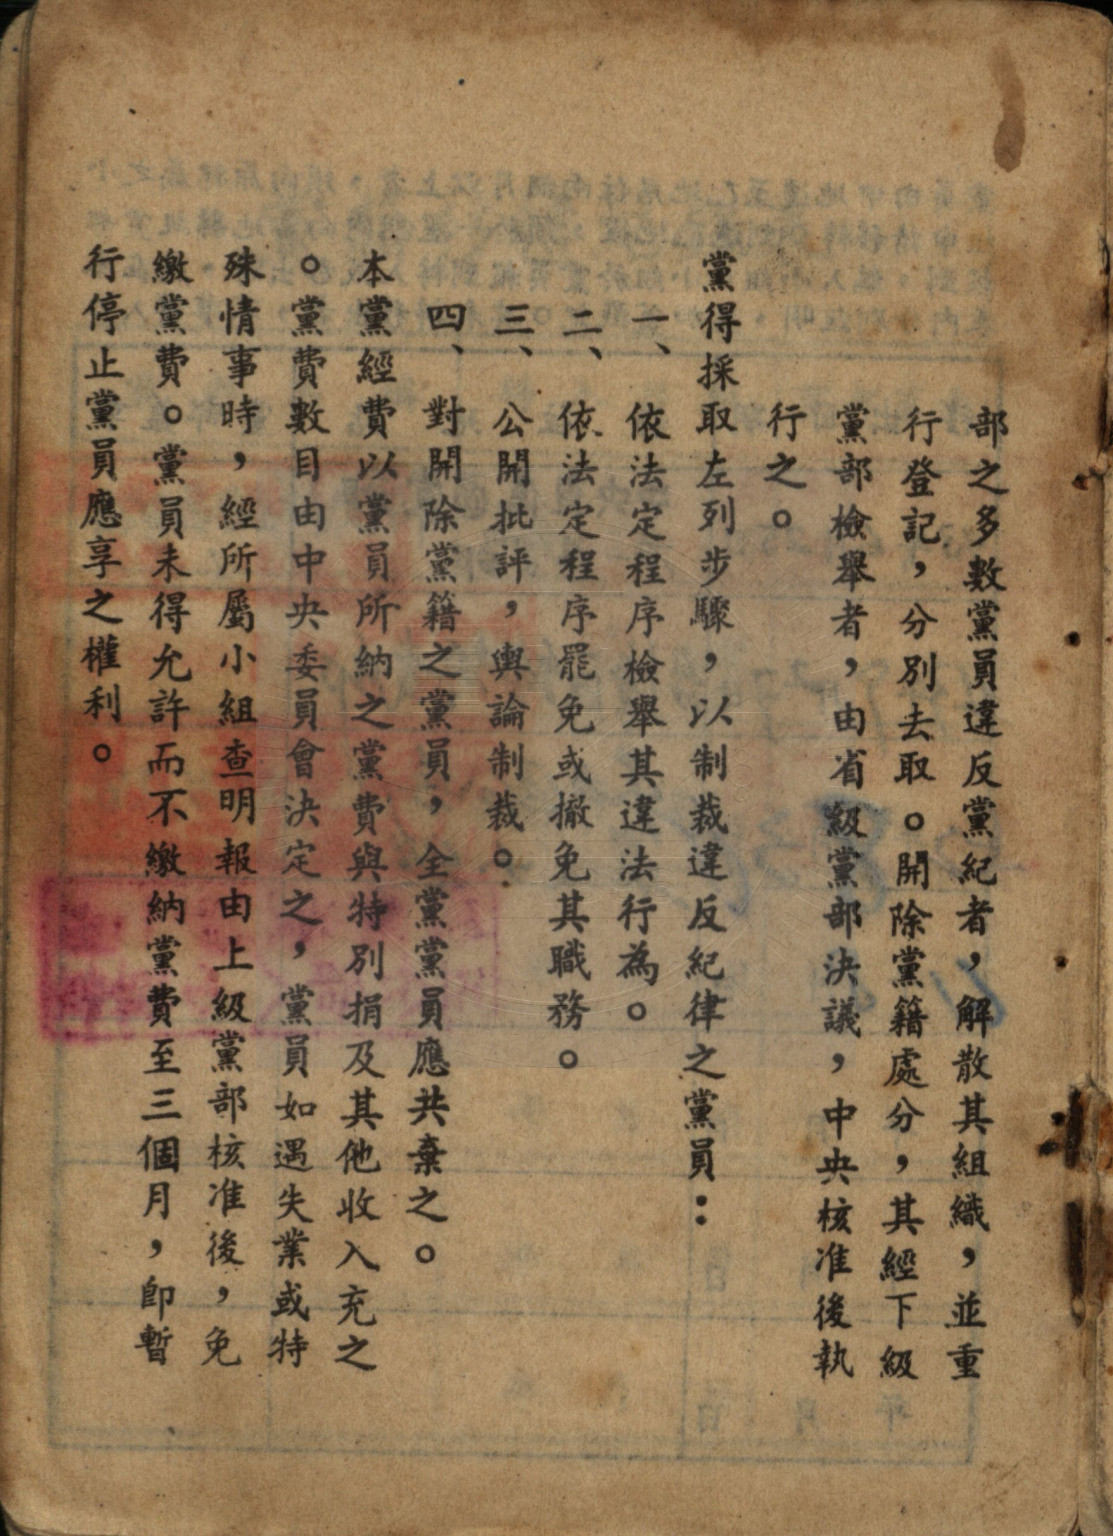 部之多數黨員違反黨紀者，解散其組織，並重
行登記，分別去取。開除黨籍處分，其經下級
黨部檢舉者，由省級黨部決議，中央核准後執
行之。
黨得採取左列步驟，以制裁違反紀律之黨員：
一、依法定程序檢舉其違法行為。
二、依法定程序罷免或撤免其職務。
三、公開批評，輿論制裁。
四、對開除黨籍之黨員，全黨黨員應共棄之。
本黨經費以黨員所納之黨費與特別捐及其他收入充之
。黨費數目由中央委員會決定之，黨員如遇失業或特
殊情事時，經所屬小組查明報由上級黨部核准後，免
繳黨費。黨員未得允許而不繳納黨費至三個月，卽暫
行停止黨員應享之權利。